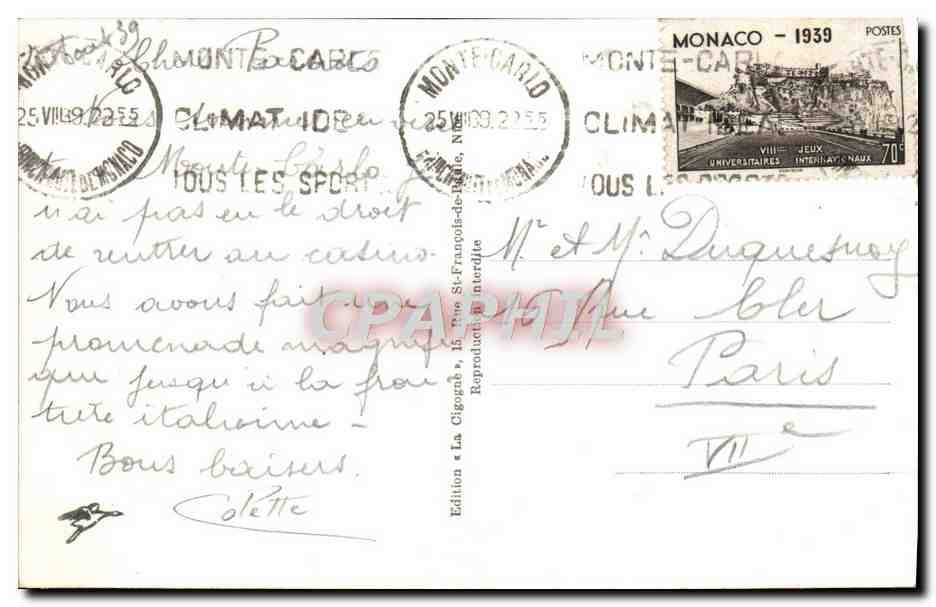 Août 39
Chers Parents
Nous sommes en
Monte Carlo je
n'ai pas eu le droit
de rentrer au casino.
Nous avons fait une
promenade magnifi
que jusqu'à la fron
tière italienne -
Bons baisers.
Colette
MONTE-CARLO
25 VIII 39. 22 55
PRINCIPAUTÉ DE MONACO
MONTE-CARLO
CLIMAT IDE
TOUS LES SPORT
MONTE-CARLO
25 VIII 39. 22 55
PRINCIPAUTÉ DE MONACO
MONTE-CARLO
CLIMAT
TOUS LES SPORTS
MONACO - 1939
POSTES
VIII JEUX
UNIVERSITAIRES INTERNATIONAUX
70c
Edition « La Cigogne », 15, Rue St-François-de-Paule, Nice
Reproduction interdite
Mr et Me Duquesnoy
16 Rue Cler
Paris
VIIe
CPAPHIL